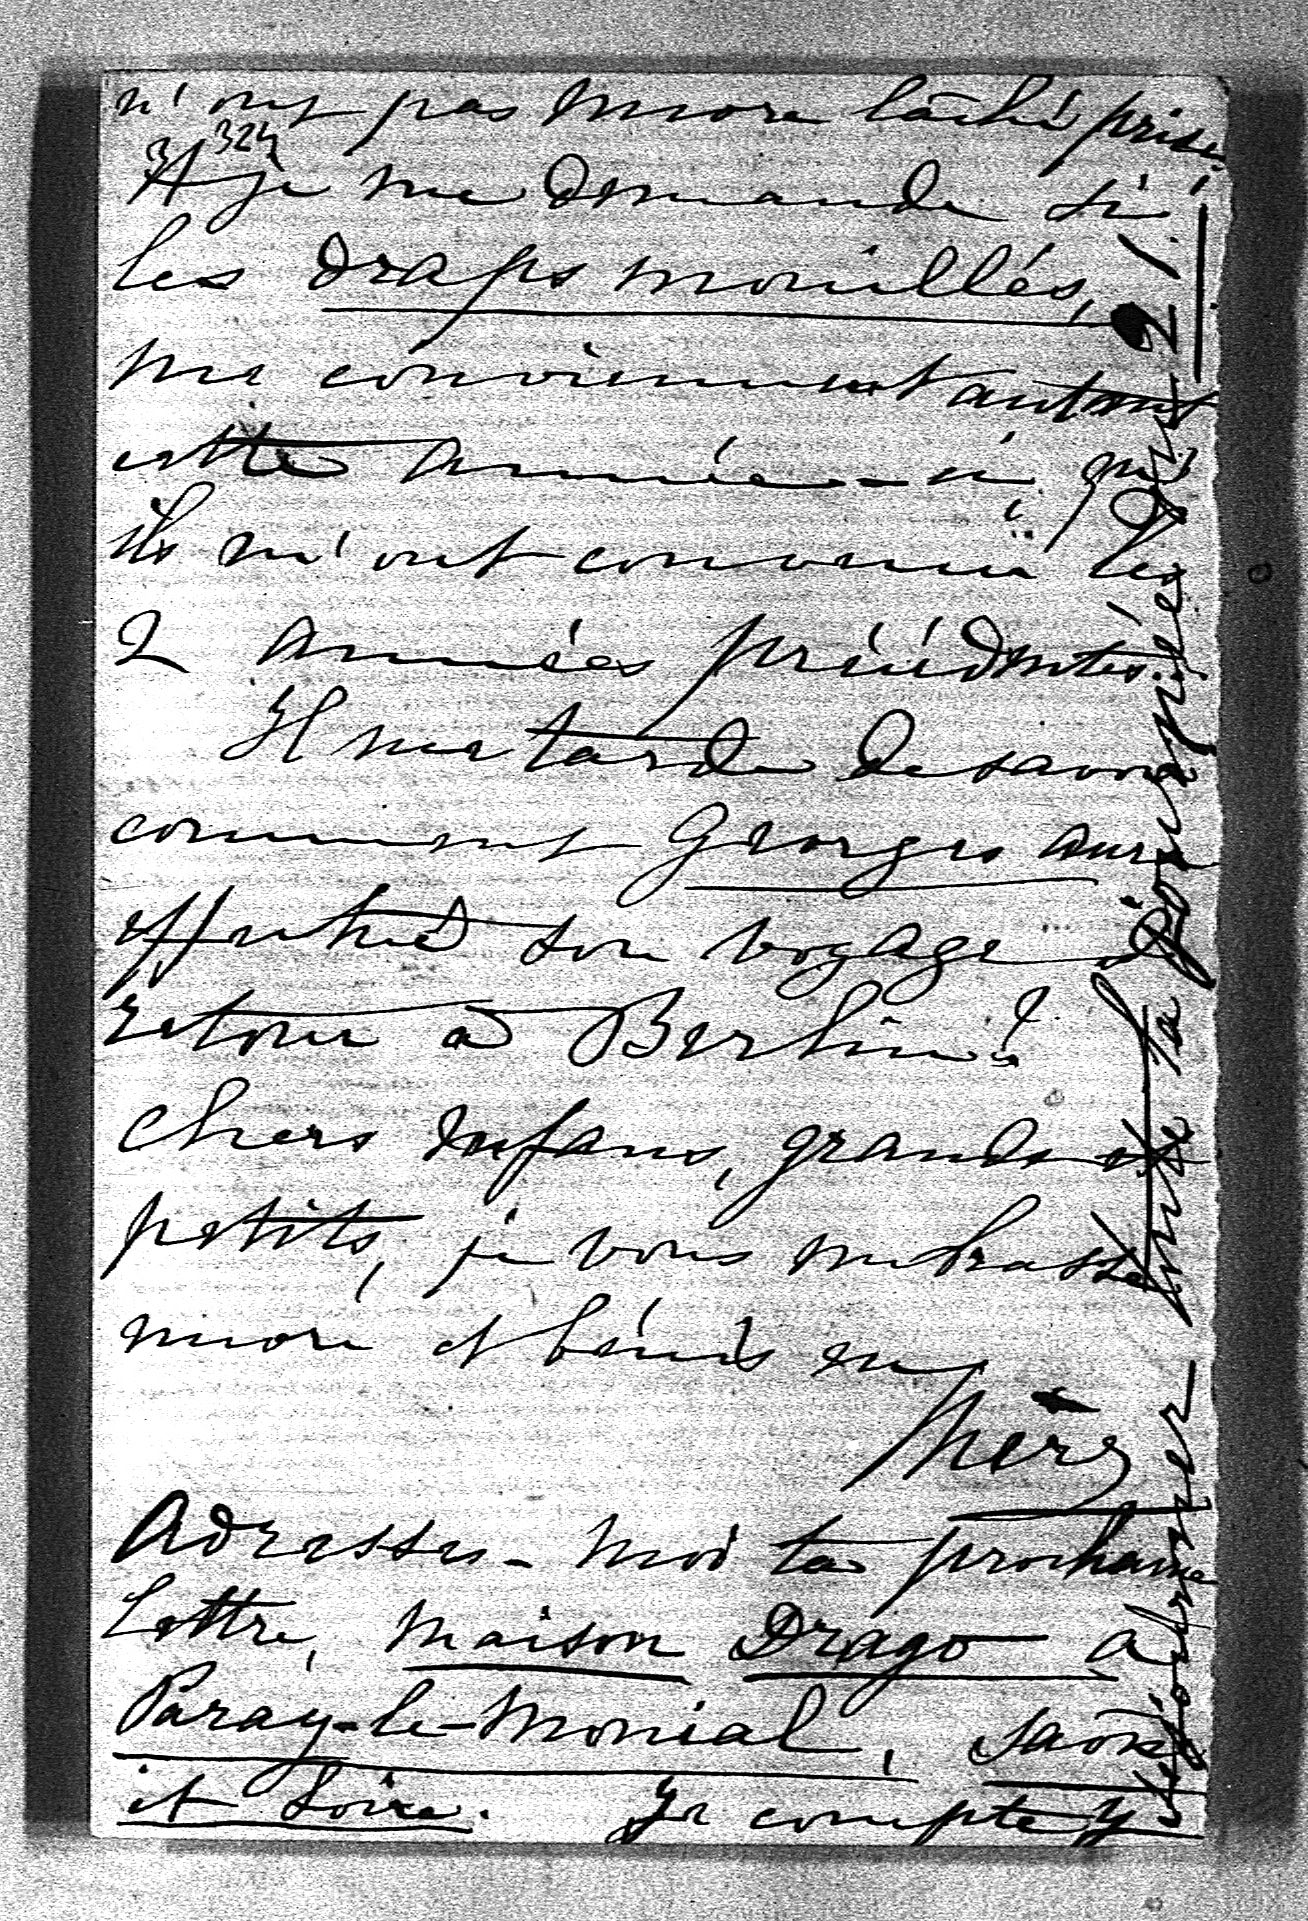 n'ont pas encore lâché prise.
324
Et je me demande si
les draps mouillés,
me conviennent autant
cette année-ci, qu'
ils m'ont convenu les
2 années précédentes.
Il me tarde de savoir
comment Georges aura
effectué son voyage de
retour à Berlin?
Chers enfans, grands et
petits, je vous embrasse
encore et bénis en
Mère
Adresses-moi ta prochaine
lettre, maison Drago à
Paray-le-Monial, Saône
et Loire. Je compte y
séjourner toute la journée du 21.